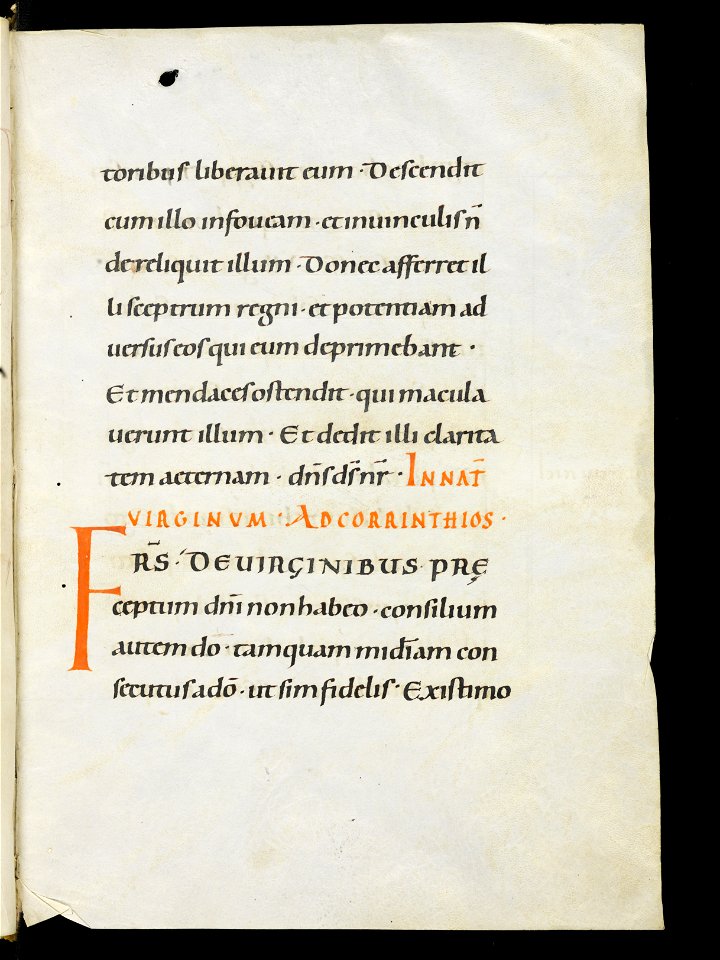 toribus liberauit eum · Descendit
cum illo infoueam · et inuinculis n̄
dereliquit illum · Donec afferret il
li sceptrum regni · et potentiam ad
uersus eos qui eum deprimebant ·
Et mendaces ostendit · qui macula
uerunt illum · Et dedit illi clarita
tem aeternam · dn̄s ds̄ nr̄ · IN NAT̄
VIRGINUM · AD CORRINTHIOS ·
FR̄S · DE UIRGINIBUS PRĘ
ceptum dn̄i non habeo · consilium
autem do · tamquam mīdiam con
secutus adō · ut sim fidelis · Existimo